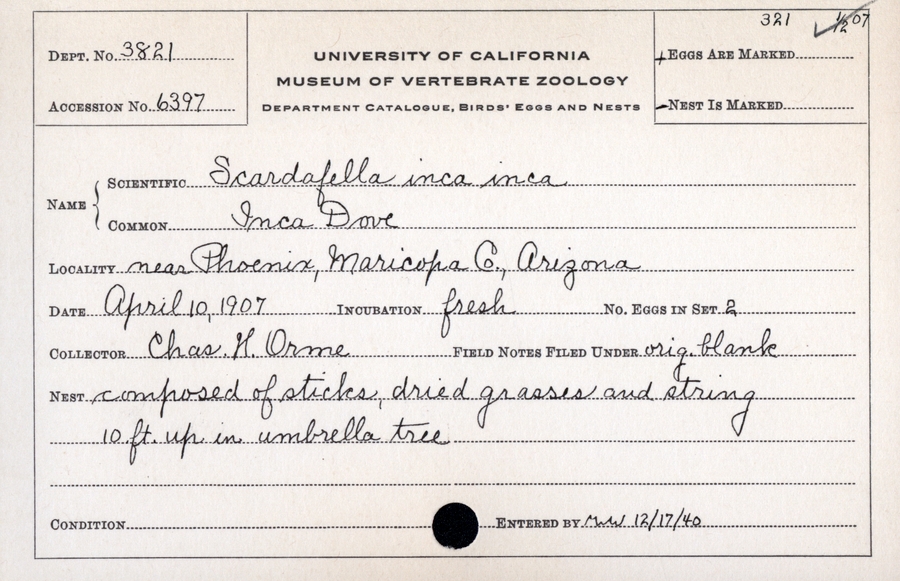 321 1/2 07
DEPT. No. 3821
UNIVERSITY OF CALIFORNIA
MUSEUM OF VERTEBRATE ZOOLOGY
DEPARTMENT CATALOGUE, BIRDS' EGGS AND NESTS
EGGS ARE MARKED
ACCESSION No. 6397
NEST IS MARKED
NAME
SCIENTIFIC Scardafella inca inca
COMMON Inca Dove
LOCALITY near Phoenix, Maricopa Co., Arizona
DATE April 10, 1907 INCUBATION fresh No. EGGS IN SET 2
COLLECTOR Chas. H. Orme FIELD NOTES FILED UNDER orig. blank
NEST composed of sticks, dried grasses and string
10 ft. up in umbrella tree
CONDITION ENTERED BY 12/17/40